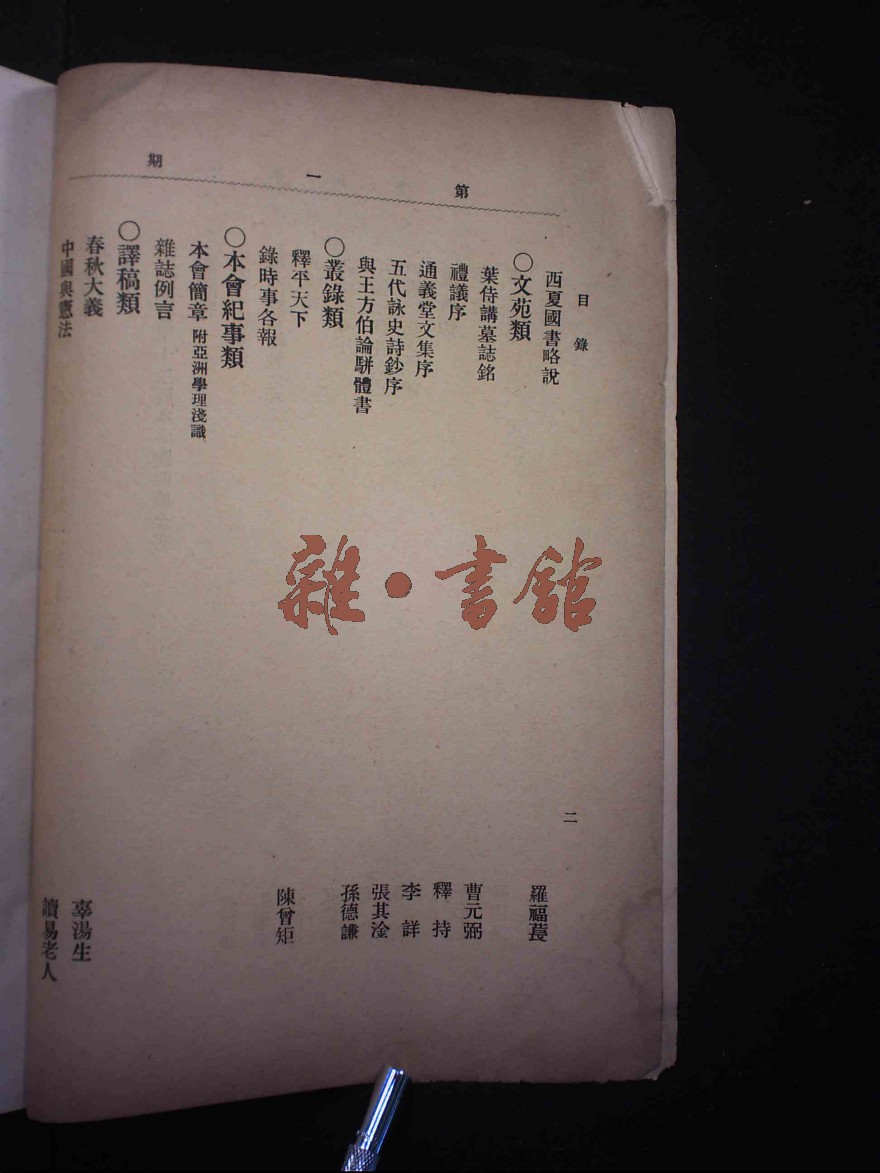 第一期
目錄
二
西夏國書略說 羅福萇
○文苑類
葉侍講墓誌銘 曹元弼
禮議序 釋持
通義堂文集序 李詳
五代詠史詩鈔序 張其淦
與王方伯論駢體書 孫德謙
○叢錄類
釋平天下 陳曾矩
錄時事各報
○本會紀事類
本會簡章 附亞洲學理淺識
雜誌例言
○譯稿類
春秋大義 辜湯生
中國與憲法 讀易老人
雜·書館